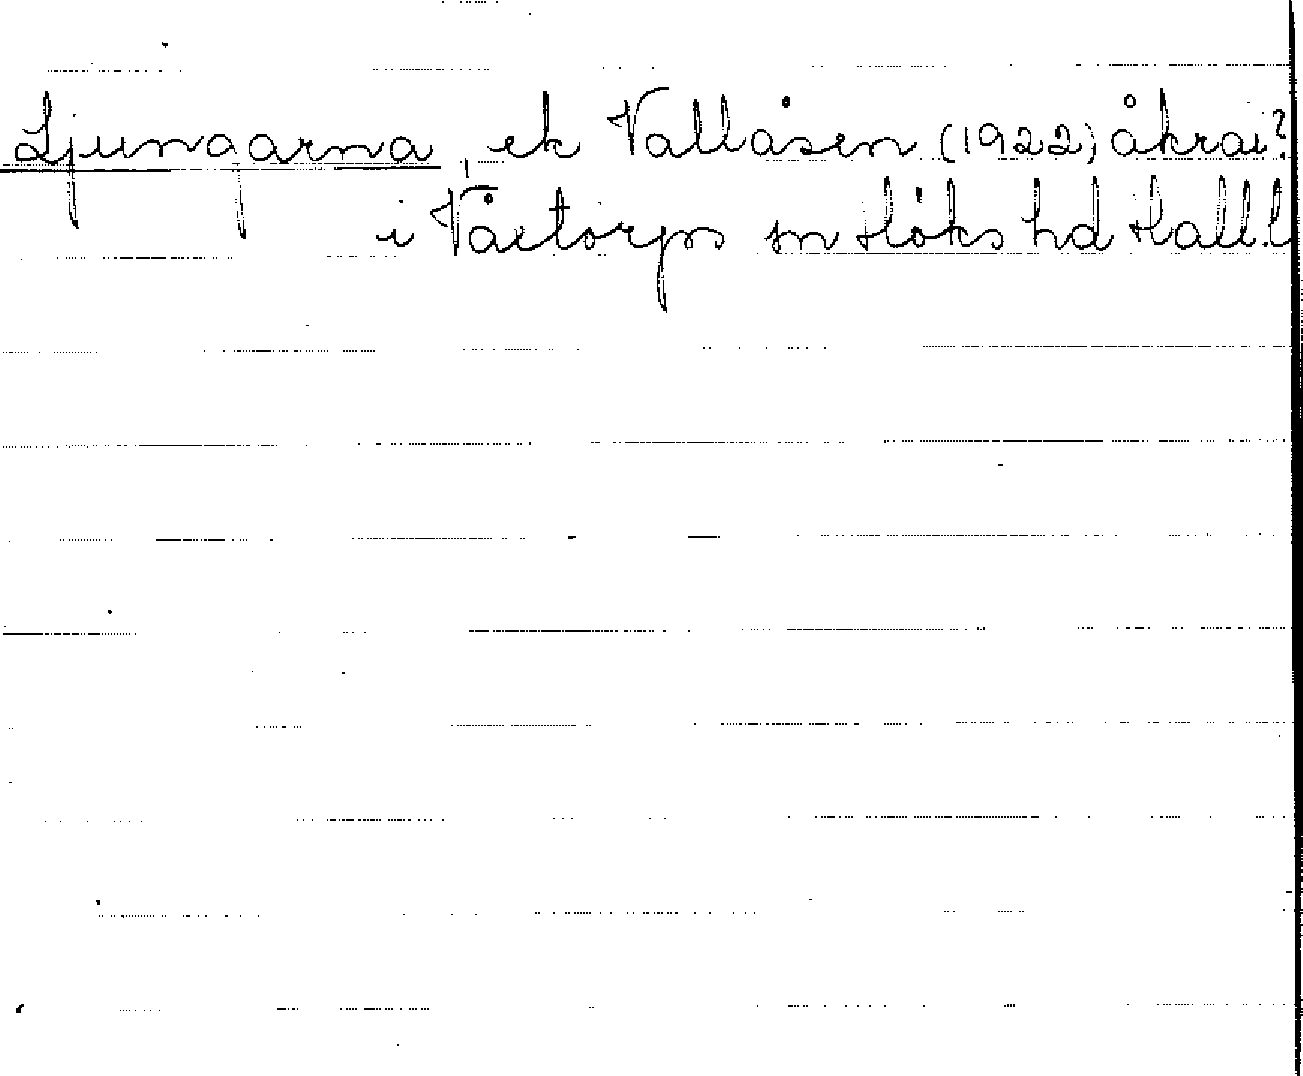 Ljungarna, ek Vallåsen (1922) åkrar?
i Våxtorps sn Höks hd Hall.l